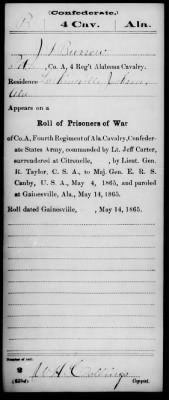 (Confederate.)
B 4 Cav. Ala.
J Burrow
, Co. A, 4 Reg't Alabama Cavalry.
Residence
Ala
Appears on a
Roll of Prisoners of War
of Co. A, Fourth Regiment of Ala Cavalry, Confederate
States Army, commanded by Lt. Jeff Carter,
surrendered at Citronelle, , by Lieut. Gen.
R. Taylor, C. S. A., to Maj. Gen. E. R. S.
Canby, U. S. A., May 4, 1865, and paroled
at Gainesville, Ala., May 14, 1865.
Roll dated Gainesville, , May 14, 1865.
Number of roll:
2
(639b) Copyist.